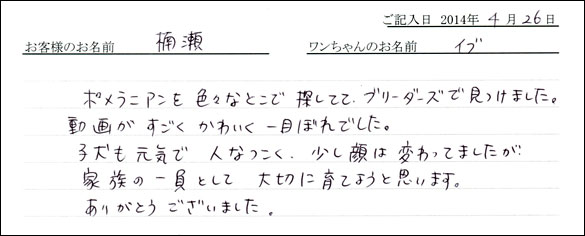 ご記入日 2014年 4月26日
お客様のお名前 楠瀬 ワンちゃんのお名前 イブ
ポメラニアンを色々なとこで探してて、ブリーダーズで見つけました。
動画がすごくかわいく一目ぼれでした。
子犬も元気で人なつこく、少し顔は変わってましたが
家族の一員として大切に育てようと思います。
ありがとうございました。